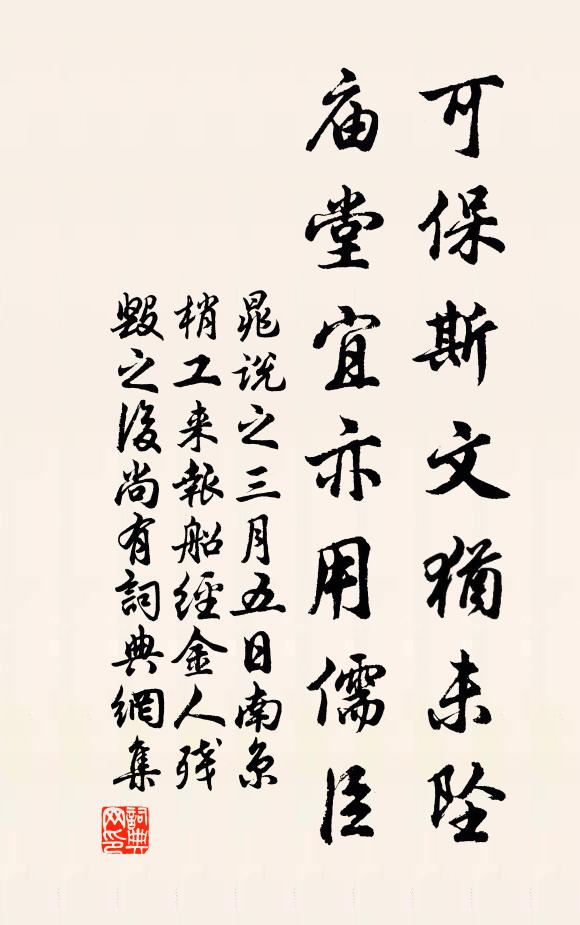 可保斯文犹未坠
庙堂宜亦用儒臣
晁说之三月五日南京
梢工来报船经金人残
毁之後尚有詞典網集
詞典網印